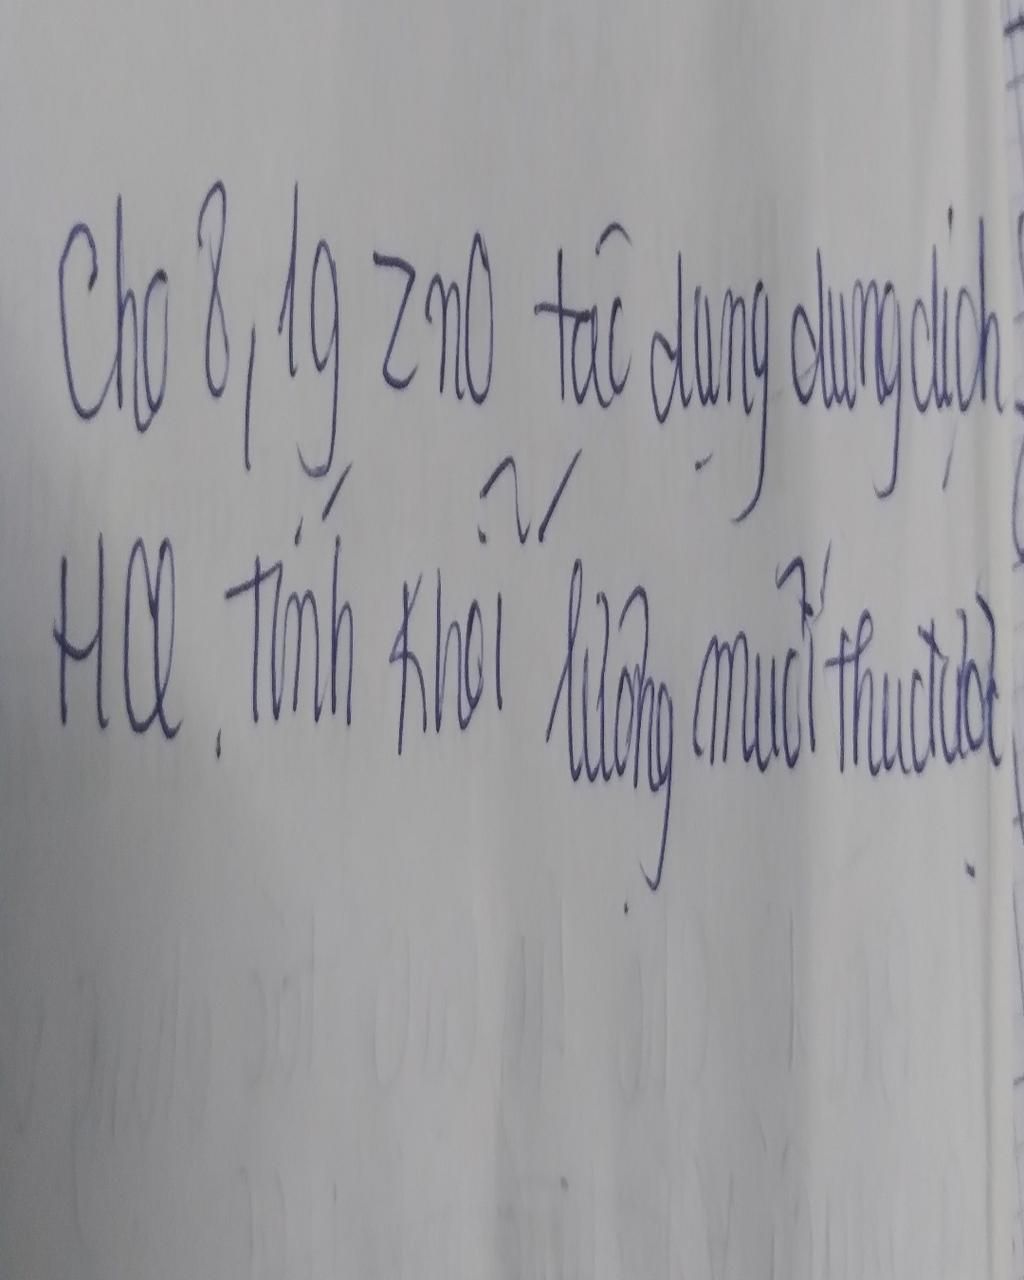 Cho 8,1g ZnO tác dụng dung dịch
HCl. Tính khối lượng muối thu được